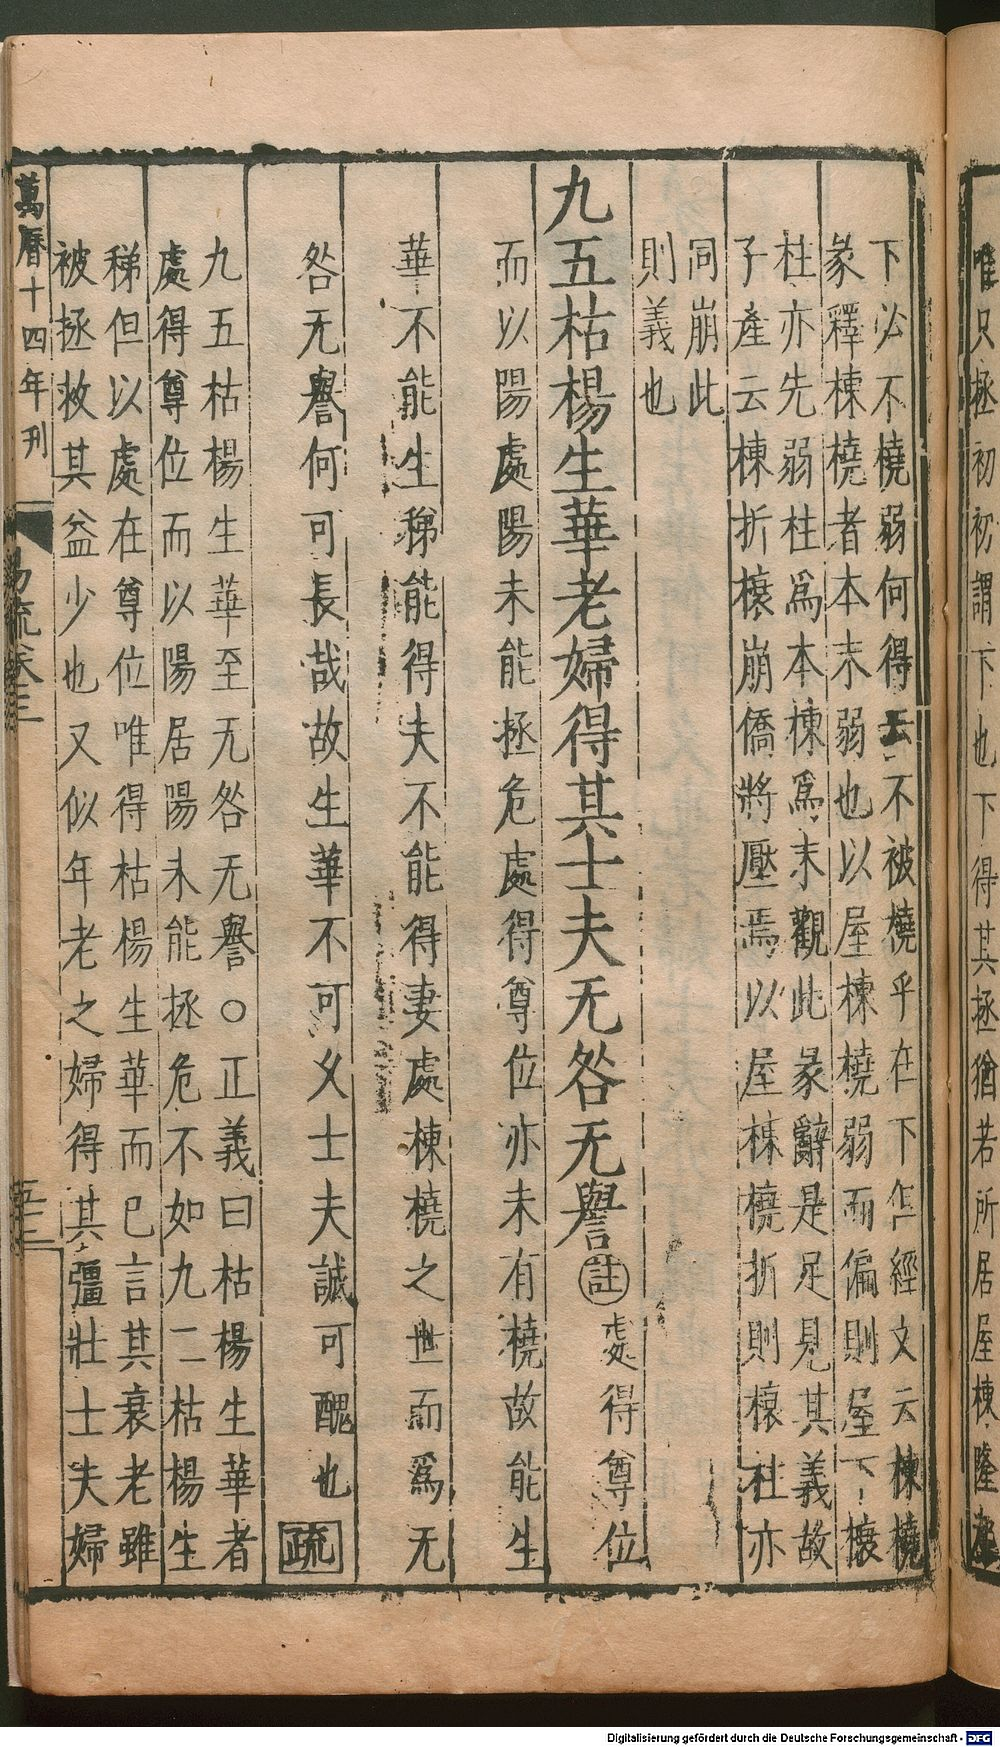 唯只拯初初謂下也下得其拯猶若所居屋棟隆
下必不橈弱何得云不被橈乎在下怎經文云棟橈
彖釋棟橈者本末弱也以屋棟橈弱而偏則屋下榱
柱亦先弱柱爲本棟爲末觀此彖辭是足見其義故
子產云棟折榱崩僑將壓焉以屋棟橈折則榱柱亦
同崩此
則義也
九五枯楊生華老婦得其士夫无咎无譽註處得尊位
而以陽處陽未能拯危處得尊位亦未有橈故能生
華不能生稊能得夫不能得妻處棟橈之世而爲无
咎无譽何可長哉故生華不可久士夫誠可醜也疏
九五枯楊生華至无咎无譽○正義曰枯楊生華者
處得尊位而以陽居陽未能拯危不如九二枯楊生
稊但以處在尊位唯得枯楊生華而已言其衰老雖
被拯救其益少也又似年老之婦得其彊壯士夫婦
萬曆十四年刊
易疏卷三
Digitalisierung gefördert durch die Deutsche Forschungsgemeinschaft - DFG